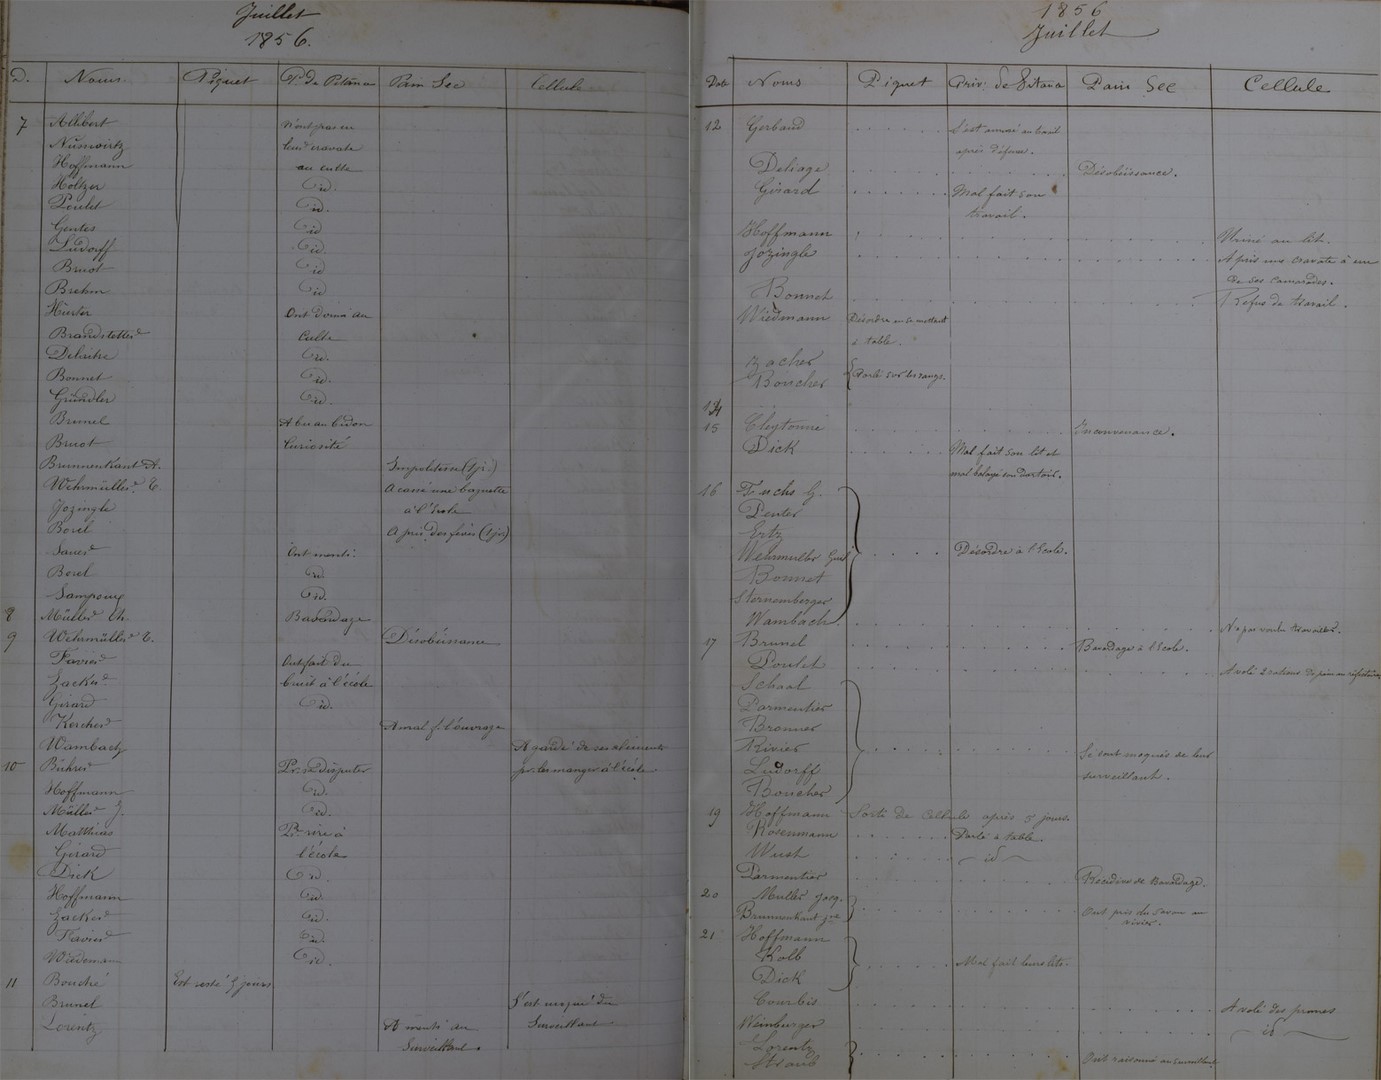 Juillet
1856.
D. Noms Piquet P. de Pitance Pain Sec Cellule
7 Allibert n'ont pas eu
Nusswirtz leur cravate
Hoffmann au culte
Holtzer id.
Poulet id.
Gentes id
Ludorff id
Bruot id
Brehm id
Hurter Ont dormi au
Brandstetter culte
Delaitre id.
Bonnet id.
Gründler id.
Brunel A bu au bidon
Bruot Curiosité
Brunnenkant A. Impolitesse (1 jr.)
Wehrmüller E. A cassé une baguette
Jozingle à l'école
Borel A pris des fèves (1 jr)
Sauer Ont menti
Borel id.
id.
8 Müller Ch. Bavardage
9 Wehrmüller E. Désobéissance
Favier Ont fait du
Zacker bruit à l'école
Girard id.
Kercher A mal f. l'ouvrage
Wambach A gardé de ses aliments
10 Bührer Pr. se disputer pr. les manger à l'école
Hoffmann id.
Müller J. id.
Matthias Pr. rire à
Girard l'école
Dick id.
Hoffmann id.
Zacker id.
Favier id.
Wiedemann id.
11 Bouché Est resté 5 jours
Brunel S'est moqué du
Lorentz A menti au Surveillant
Surveillant.
1856
Juillet
Date Noms Piquet Priv. de Pitance Pain Sec Cellule
12 Gerbaud S'est amusé au
après défense.
Deliage Désobéissance.
Girard Mal fait son
travail.
Hoffmann Uriné au lit.
Jozingle A pris une cravate à un
de ses camarades.
Bonnet Refus de travail.
Wiedmann Désordre en se mettant
à table.
Zacher
Boucher Parlé sur les rangs.
14
15 Cleytonie Inconvenance.
Dick Mal fait son lit et
mal balayé son dortoir.
16 Fuchs G.
Penter
Ertz
Wehrmuller Gust Désordre à l'école.
Bonnet
Sternemberger
Wambach N'a pas voulu travailler.
17 Brunel Bavardage à l'école.
Poulet A volé 2 rations de pain au réfectoire
Schaal
Parmentier
Bronner
Rivier Se sont moqués de leur
Ludorff surveillant.
Boucher
19 Hoffmann Sorti de Cellule après 5 jours.
Rosenmann Parlé à table.
Wust id
Parmentier Récidive de Bavardage.
20 Muller Jacq.
Brunnenkant Ont pris du savon au
rivier.
21 Hoffmann
Kolb Mal fait leurs lits.
Dick
Courbis A volé des prunes
Weinburger id
Lorentz
Straub Ont raisonné au surveillant